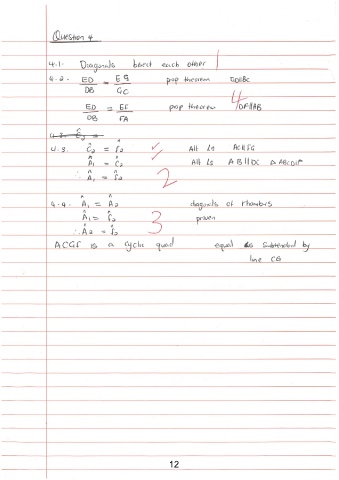 Question 4
4.1. Diagonals bisect each other 1
4.2. ED/DB = EG/GC prop theorem DG∥BC
4
ED/DB = EF/FA prop theorem DF∥AB
4.3. Ĉ₂ =
4.3. Ĉ₂ = F̂₂ ✓ Alt ∠s AC∥FG
Â₁ = Ĉ₂ ✓ Alt ∠s AB∥DC
∴ Â₁ = F̂₂ 2
4.4. Â₁ = Â₂ diagonals of rhombus
Â₁ = F̂₂ 3 proven
∴ Â₂ = F̂₂
ACGF is a cyclic quad equal ∠s subtended by
line CG
12